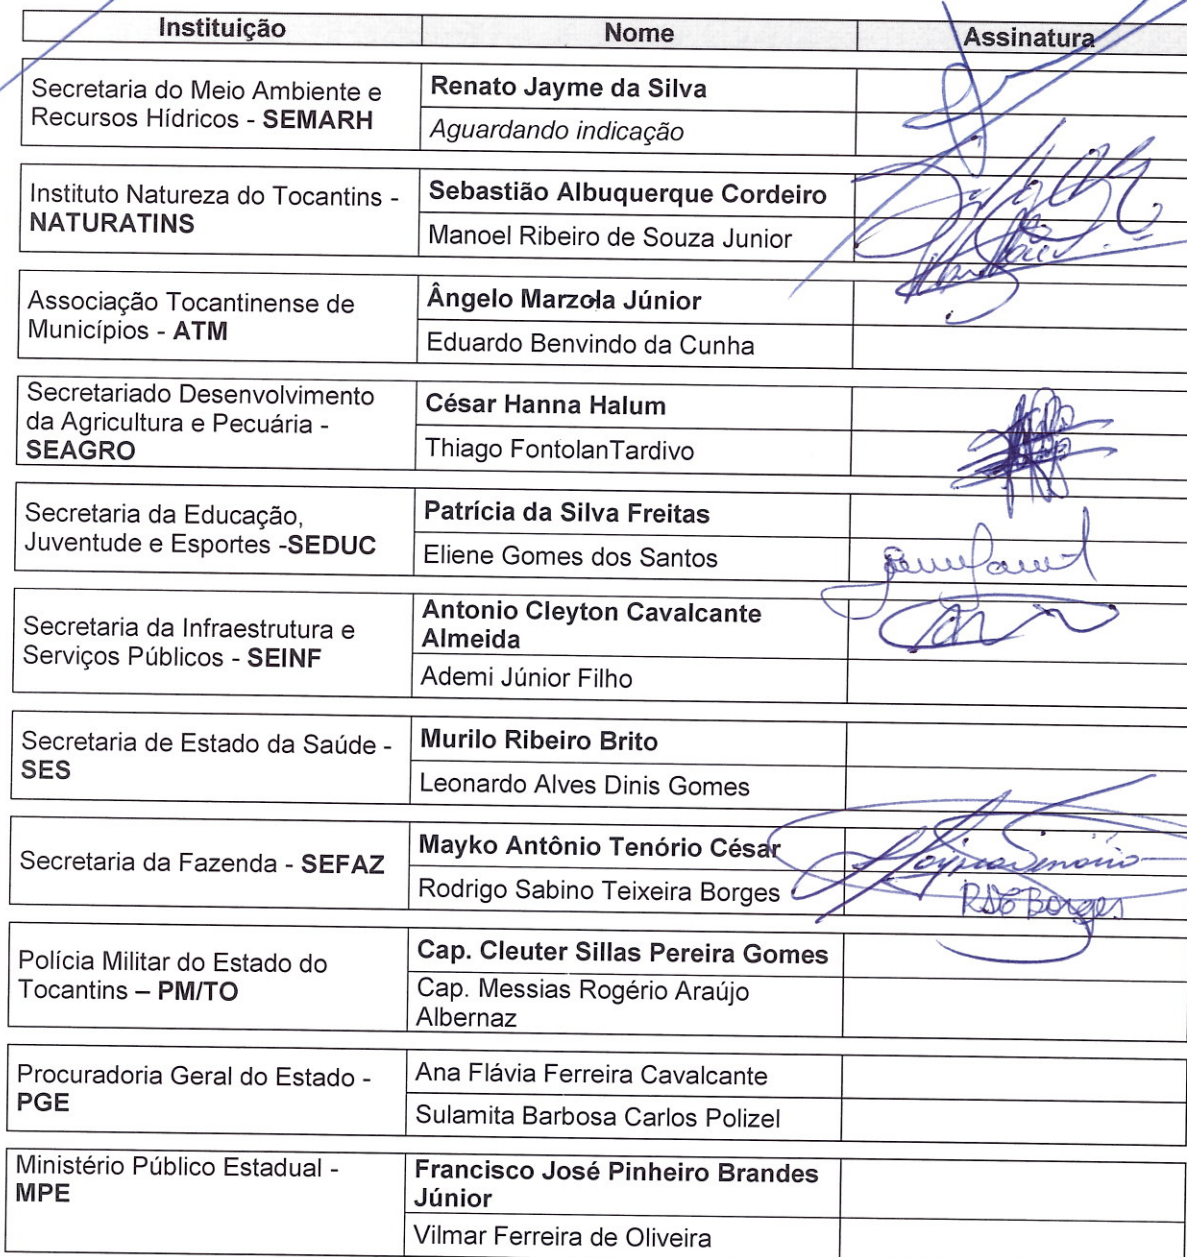 Instituição Nome Assinatura
Secretaria do Meio Ambiente e
Recursos Hídricos - SEMARH
Renato Jayme da Silva
Aguardando indicação
Instituto Natureza do Tocantins -
NATURATINS
Sebastião Albuquerque Cordeiro
Manoel Ribeiro de Souza Junior
Associação Tocantinense de
Municípios - ATM
Ângelo Marzola Júnior
Eduardo Benvindo da Cunha
Secretariado Desenvolvimento
da Agricultura e Pecuária -
SEAGRO
César Hanna Halum
Thiago FontolanTardivo
Secretaria da Educação,
Juventude e Esportes -SEDUC
Patrícia da Silva Freitas
Eliene Gomes dos Santos
Secretaria da Infraestrutura e
Serviços Públicos - SEINF
Antonio Cleyton Cavalcante
Almeida
Ademi Júnior Filho
Secretaria de Estado da Saúde -
SES
Murilo Ribeiro Brito
Leonardo Alves Dinis Gomes
Secretaria da Fazenda - SEFAZ
Mayko Antônio Tenório César
Rodrigo Sabino Teixeira Borges
Borges
Polícia Militar do Estado do
Tocantins – PM/TO
Cap. Cleuter Sillas Pereira Gomes
Cap. Messias Rogério Araújo
Albernaz
Procuradoria Geral do Estado -
PGE
Ana Flávia Ferreira Cavalcante
Sulamita Barbosa Carlos Polizel
Ministério Público Estadual -
MPE
Francisco José Pinheiro Brandes
Júnior
Vilmar Ferreira de Oliveira